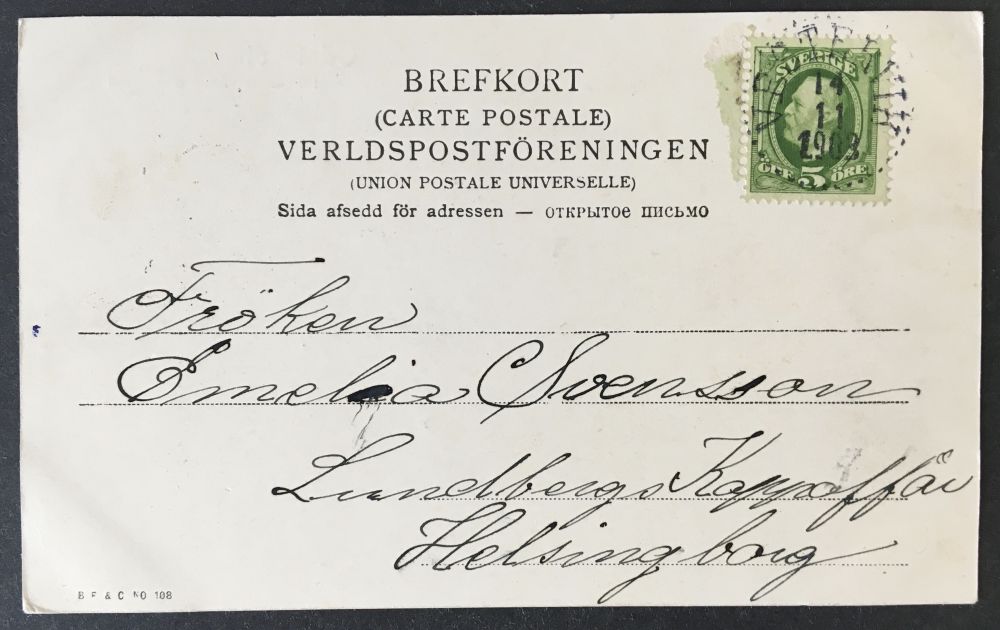 BREFKORT
(CARTE POSTALE)
VERLDSPOSTFÖRENINGEN
(UNION POSTALE UNIVERSELLE)
Sida afsedd för adressen — открытое письмо
SVERIGE
14
11
1903
5 ÖRE
Fröken
Emelia Svensson
Lundbergs Kappaffär
Helsingborg
B F & C NO 108